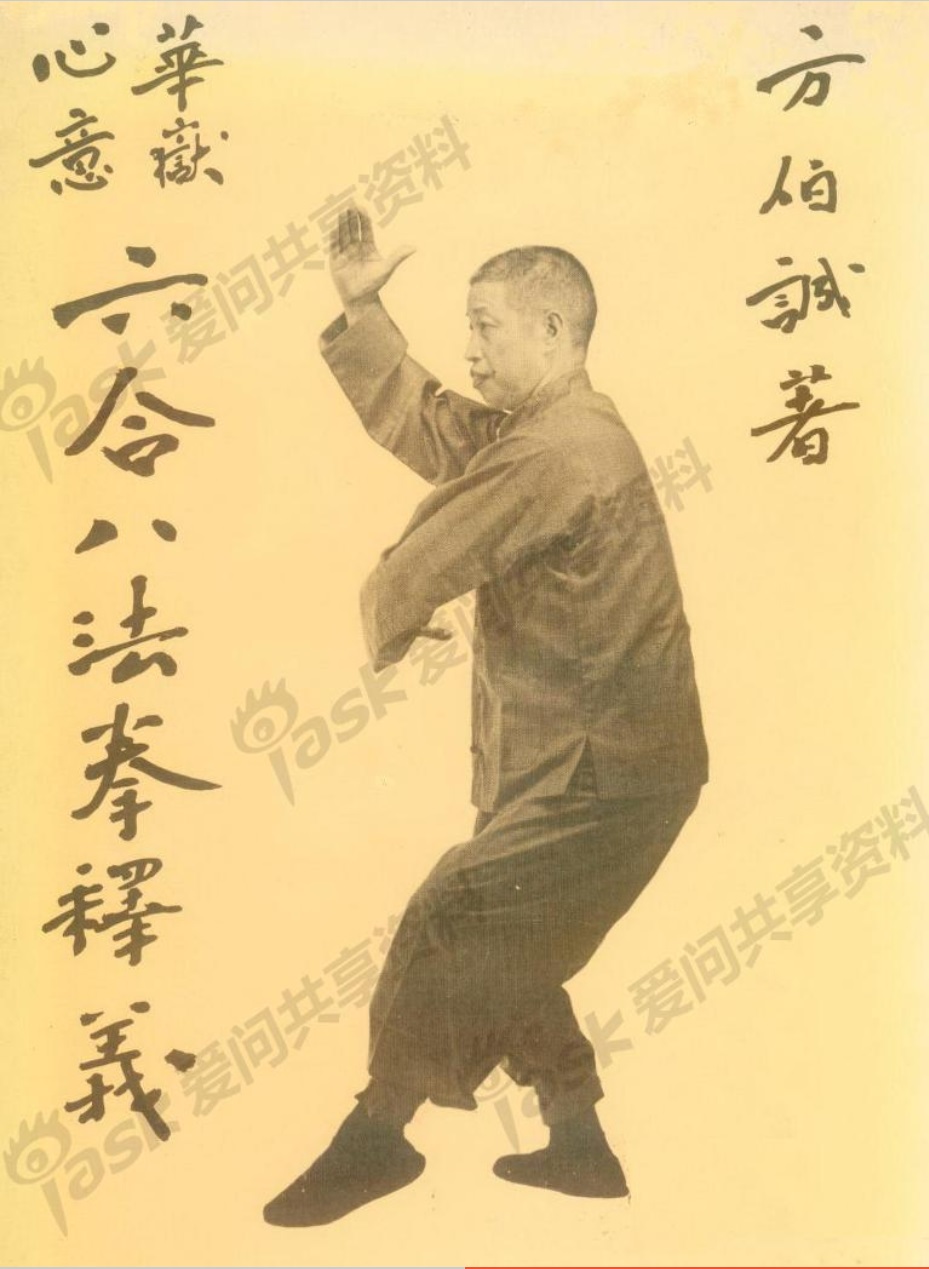 方伯誠著
華嶽
心意
六合八法拳釋義
iask 爱问共享资料
iask 爱问共享资料
iask 爱问共享资料
iask 爱问共享资料